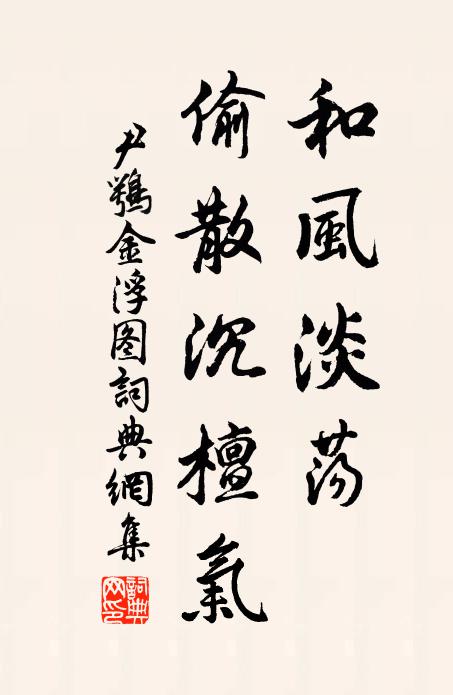 和風淡蕩
偷散沉檀氣
尹鶚金浮图詞典網集
詞典网印